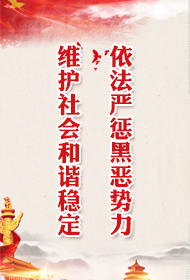 依法严惩黑恶势力
维护社会和谐稳定